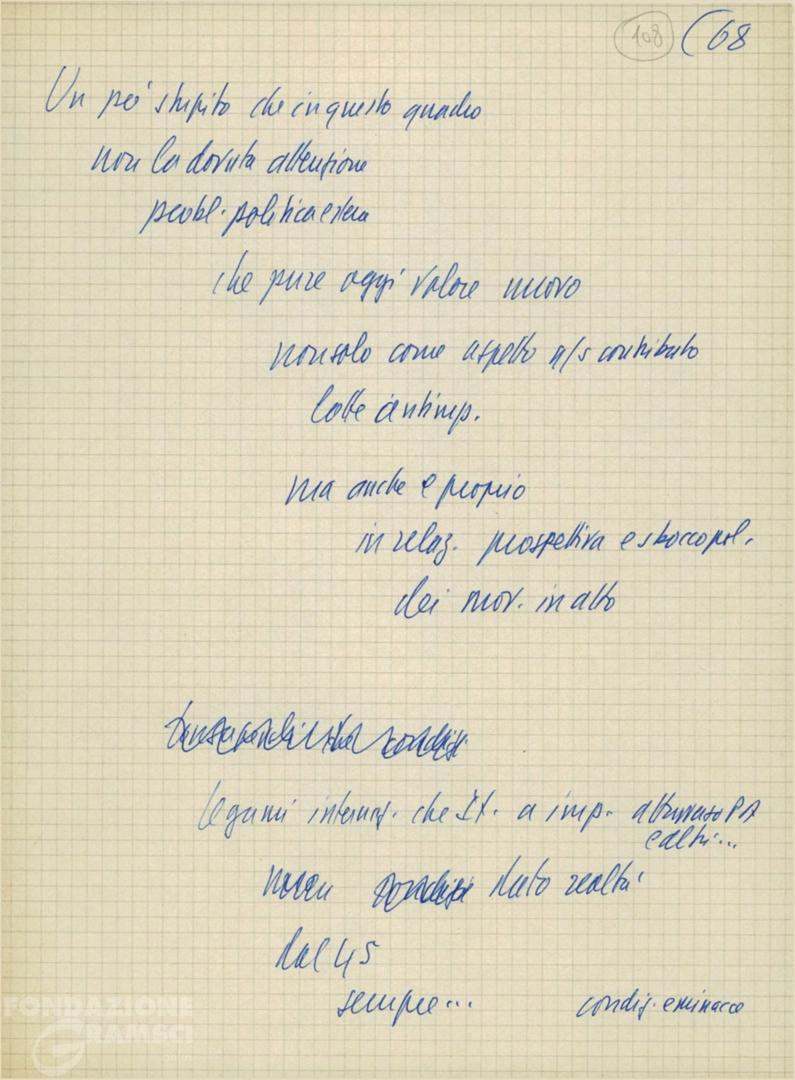 108 (68
Un po' stupito che in questo quadro
non la dovuta attenzione
probl. politica estera
che pure oggi valore nuovo
non solo come aspetto n/s contributo
lotte antimp.
ma anche e proprio
in relaz. prospettiva e sbocco pol.
dei mov. in atto
legami internaz. che It. a imp. attraverso PA
e altri...
dato realtà
dal 45
sempre... condiz. e minacce
FONDAZIONE
GRAMSCI